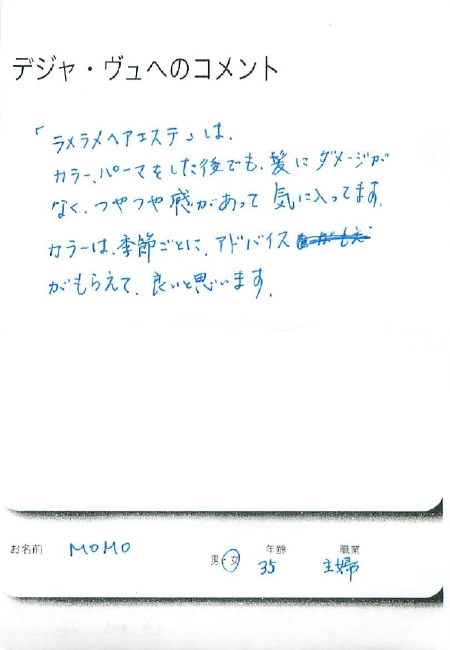 デジャ・ヴュへのコメント
「ラメラメヘアエステ」は、
カラー、パーマをした後でも、髪にダメージが
なく、つやつや感があって気に入ってます。
カラーは、季節ごとに、アドバイス
がもらえて、良いと思います。
お名前 MOMO 男・女 年齢 35 職業 主婦